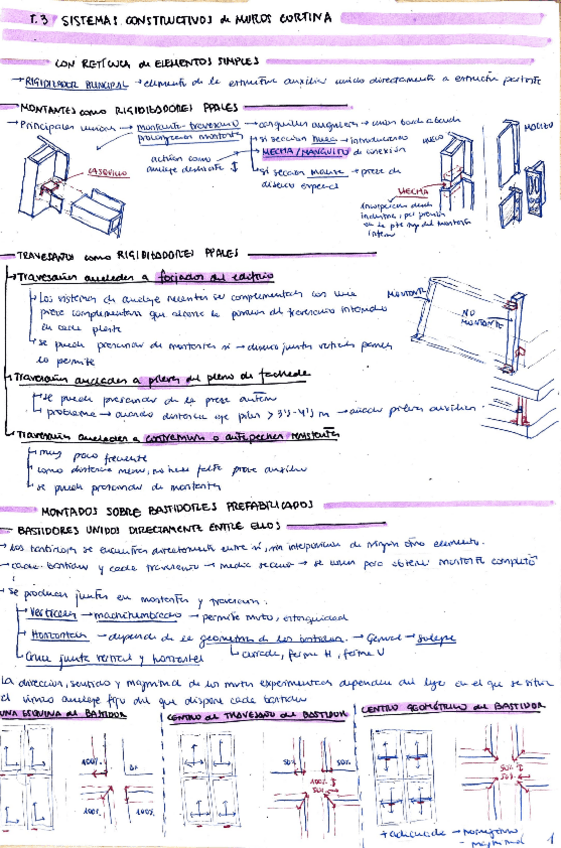 T.3 SISTEMAS CONSTRUCTIVOS de MUROS CORTINA
CON RETÍCULA de ELEMENTOS SIMPLES
→ RIGIDIZADOR PRINCIPAL → elemento de la estructura auxiliar unido directamente a estructura portante
MONTANTES como RIGIDIZADORES PPALES
→ Principales uniones → montante-travesaño → casquillos angulares → unión borde a borde
prolongación montante
si sección hueca → introduciendo
MECHA/MANGUITO de conexión
si sección maciza → pieza de
diseño especial
actúan como
anclaje deslizante
CASQUILLO
HUECO
MACIZO
MECHA
TRAVESAÑOS como RIGIDIZADORES PPALES
→ Travesaños anclados a forjados del edificio
→ Los sistemas de anclaje recientes se complementan con una
pieza complementaria que alcance la posición del travesaño intermedio
en cada planta
→ se puede prescindir de montantes si → diseño juntas verticales paneles
lo permite
MONTANTE
NO MONTANTE
→ Travesaños anclados a pilares del plano de fachada
→ se puede prescindir de la pieza auxiliar
→ problema → cuando distancia eje pilar > 3'5-4'5 m → añadir pilares auxiliares
→ Travesaños anclados a contraminas o antepechos resistentes
→ muy poco frecuente
→ como distancia menor, no hace falta pieza auxiliar
→ se puede prescindir de montantes
MONTADOS SOBRE BASTIDORES PREFABRICADOS
BASTIDORES UNIDOS DIRECTAMENTE ENTRE ELLOS
→ Los bastidores se encuentran directamente entre sí, sin interposición de ningún otro elemento.
→ cada bastidor y cada travesaño → media sección → se unen para obtener montante completo
→ se producen juntas en montantes y travesaños:
→ Verticales → machihembrado → permite mvto, estanquidad
→ Horizontales → depende de la geometría de los bastidores → General → solape
→ Cruce junta vertical y horizontal
→ cuadrada, forma H, forma U
La dirección, sentido y magnitud de los mvtos experimentados dependen del lugar en el que se sitúe
el único anclaje fijo del que dispone cada bastidor
UNA ESQUINA del BASTIDOR
CENTRO del TRAVESAÑO del BASTIDOR
CENTRO GEOMÉTRICO del BASTIDOR
100%
100%
100%
50%
50%
100%
50%
50%
50%
+ adecuado → homogéneo
- magnitud
1